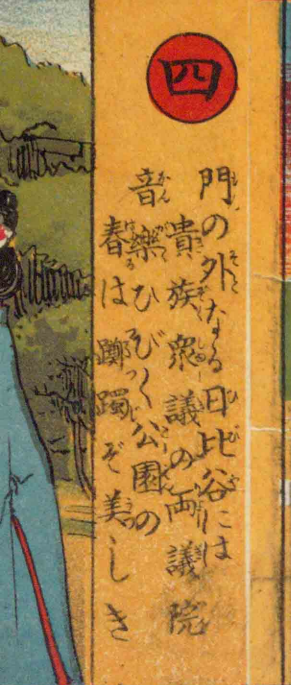 四
門の外なる日比谷には
貴族衆議の両議院
音樂ひびく公園の
春は躑躅ぞ美しき